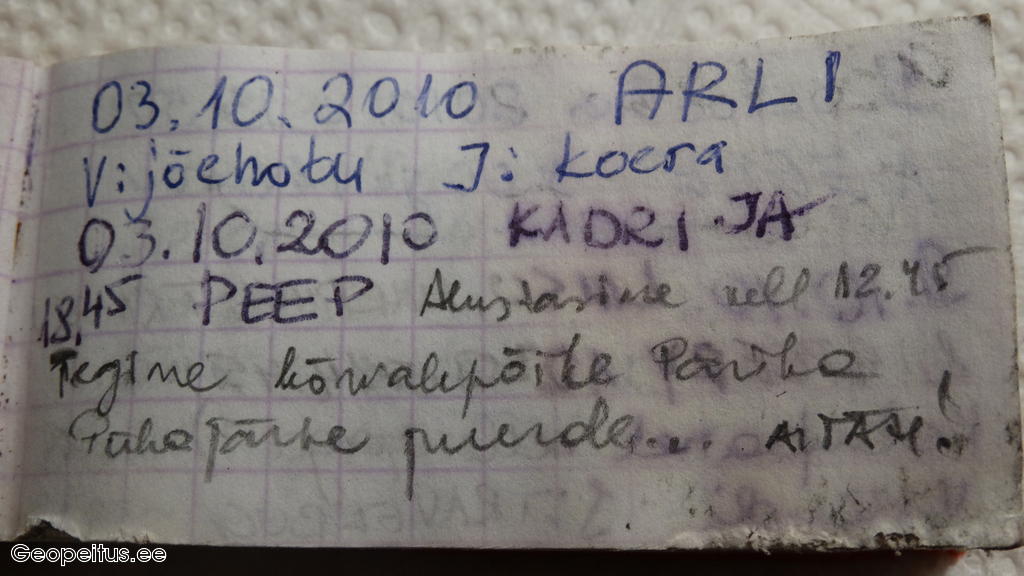 03.10.2010 ARLI
V: jõehobu J: koera
03.10.2010 KADRI JA
18.45 PEEP Alustasime kell 12.45
Tegime kõrvalepõike Pärika
Pühajärve juurde... AITÄH!
Geopeitus.ee